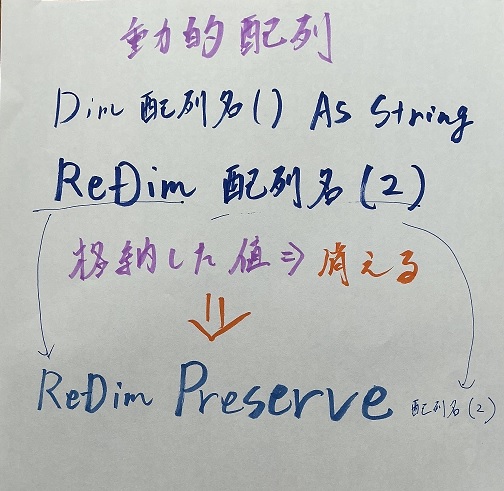 動的配列
Dim 配列名() As String
ReDim 配列名(2)
格納した値⇒消える
⇓
ReDim Preserve 配列名(2)